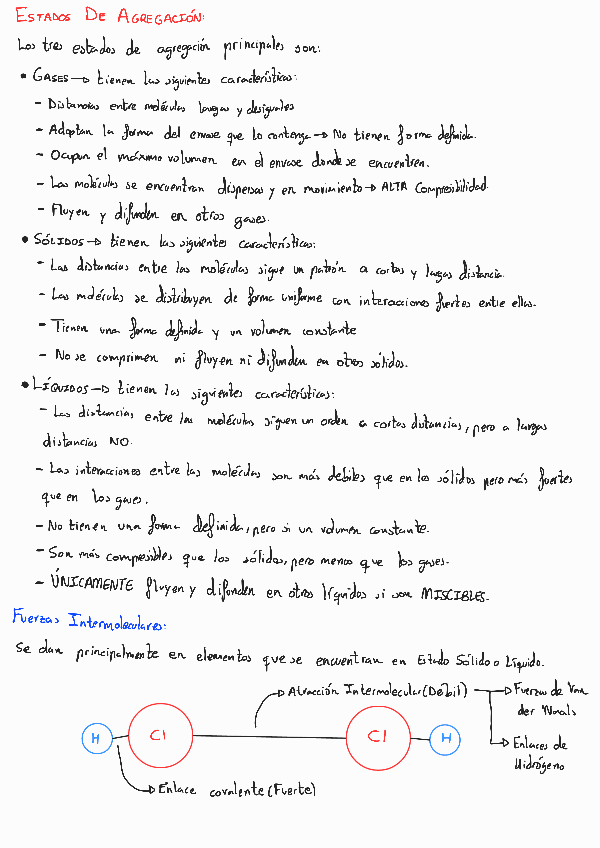 ESTADOS DE AGREGACIÓN:
Los tres estados de agregación principales son:
• GASES → tienen las siguientes características:
- Distancias entre moléculas largas y desiguales
- Adoptan la forma del envase que lo contenga → No tienen forma definida.
- Ocupan el máximo volumen en el envase donde se encuentren.
- Las moléculas se encuentran dispersas y en movimiento → ALTA Compresibilidad.
- Fluyen y difunden en otros gases.
• SÓLIDOS → tienen las siguientes características:
- Las distancias entre las moléculas sigue un patrón a cortas y largas distancia.
- Las moléculas se distribuyen de forma uniforme con interacciones fuertes entre ellas.
- Tienen una forma definida y un volumen constante
- No se comprimen ni fluyen ni difunden en otros sólidos.
• LÍQUIDOS → tienen las siguientes características:
- Las distancias entre las moléculas siguen un orden a cortas distancias, pero a largas
distancias NO.
- Las interacciones entre las moléculas son más debiles que en los sólidos pero más fuertes
que en los gases.
- No tienen una forma definida, pero si un volumen constante.
- Son más compresibles que los sólidos, pero menos que los gases.
- ÚNICAMENTE fluyen y difunden en otros líquidos si son MISCIBLES.
Fuerzas Intermoleculares:
Se dan principalmente en elementos que se encuentran en Estado Sólido o Líquido.
→ Atracción Intermolecular (Débil) → Fuerzas de Van
der Waals
H Cl Cl H
→ Enlaces de
Hidrógeno
→ Enlace covalente (Fuerte)